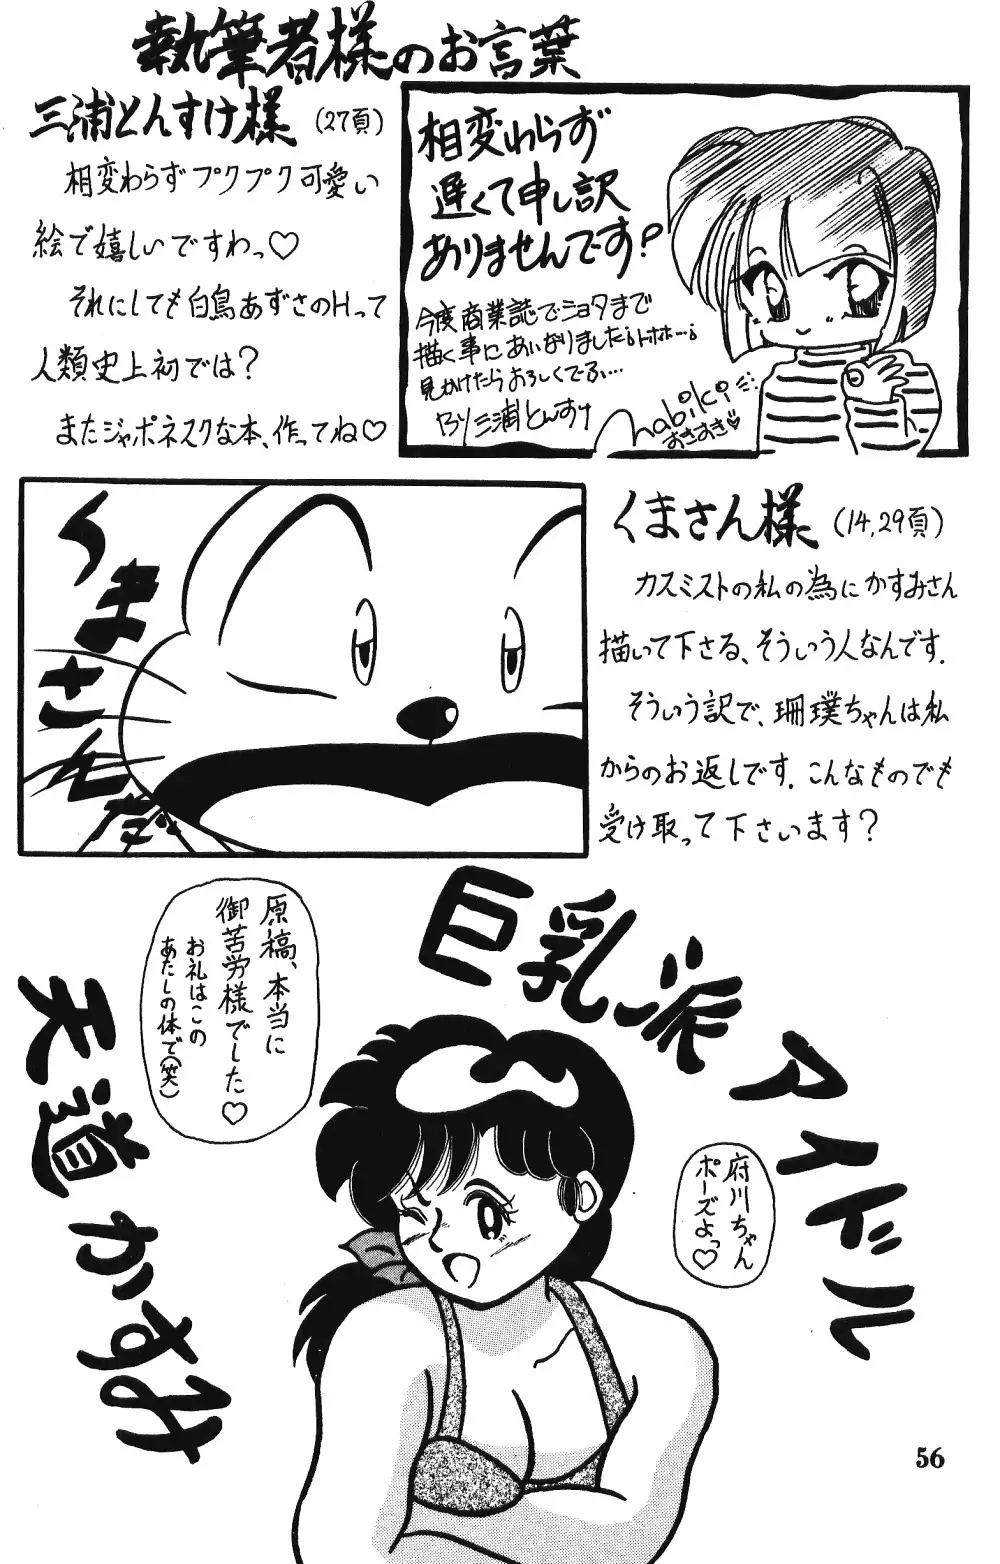 執筆者様のお言葉
三浦とんすけ様 (27頁)
相変わらずプクプク可愛い
絵で嬉しいですわっ♡
それにしても白鳥あずさのHって
人類史上初では?
またジャポネスクな本、作ってね♡
相変わらず
遅くて申し訳
ありませんです?
今度商業誌でショタまで
描く事にあいなりました。トホホ…。
見かけたらよろしくでふ…
By 三浦とんすけ
nabiki
すきすき♡
くまさんだ
くまさん様 (14,29頁)
カスミストの私の為にかすみさん
描いて下さる、そういう人なんです.
そういう訳で、珊璞ちゃんは私
からのお返しです.こんなものでも
受け取って下さいます?
巨乳派アイドル
天道かすみ
原稿、本当に
御苦労様でした♡
お礼はこの
あたしの体で(笑)
府川ちゃん
ポーズよっ♡
56